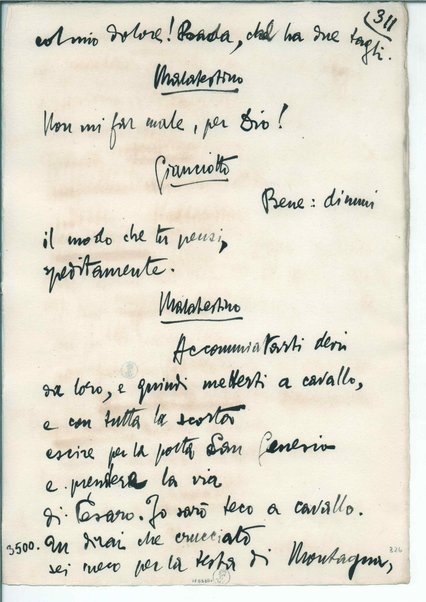 311
col mio dolore! Bada, che ha due tagli.
Malatestino
Non mi far male, per Dio!
Gianciotto
Bene: dimmi
il modo che tu pensi,
speditamente.
Malatestino
Accommiatarti devi
da loro, e quindi metterti a cavallo,
e con tutta la scorta
escire per la porta San Genesio
e prendere la via
di Pesaro. Io sarò teco a cavallo.
3500. Tu dirai che crucciato
sei meco per la testa di Montagna,
326